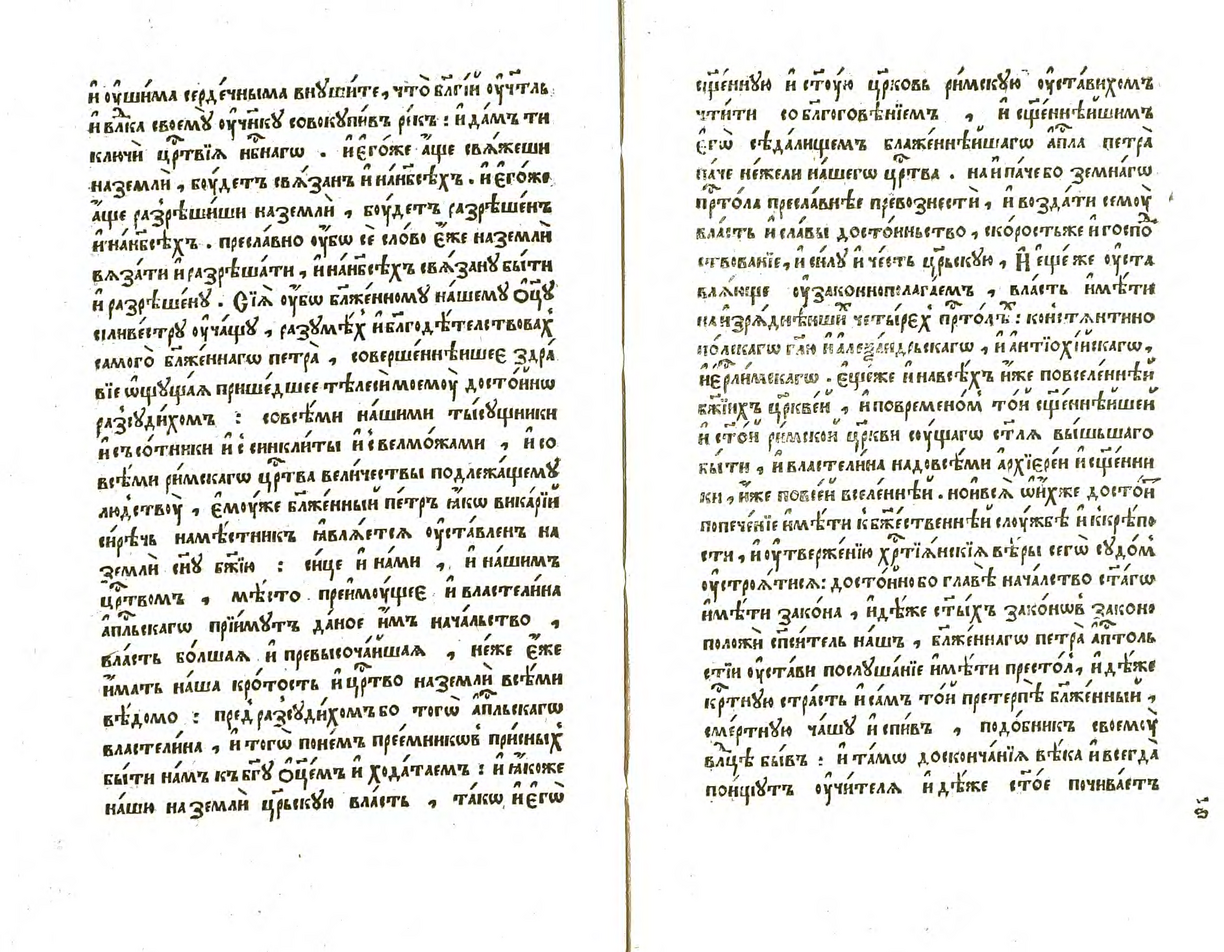 и҆ ᲂу҆ши́ма серде́чныма внꙋши́те, что̀ бл҃гі́й ᲂу҆чт҃ль
и҆ влⷣка своемꙋ̀ ᲂу҆чн҃кꙋ совокꙋпи́въ ре́къ : и҆ да́мъ ти
ключѝ црⷭ҇твїѧ нбⷭ҇наго . и҆ є҆го́же а҆́ще свѧ́жеши
на землѝ , бꙋ́детъ свѧ́занъ и҆ на нб҃сѣ́хъ . и҆ є҆го́же
а҆́ще разрѣши́ши на землѝ , бꙋ́детъ разрѣше́нъ
и҆ на нб҃сѣ́хъ . пресла́вно ᲂу҆́бѡ сѐ сло́во є҆́же на землѝ
вѧза́ти и҆ разрѣша́ти , и҆ на нб҃сѣ́хъ свѧ́занꙋ бы́ти
и҆ разрѣше́нꙋ . Сїѧ̀ ᲂу҆́бѡ бл҃же́нномꙋ на́шемꙋ ѻ҆ц҃ꙋ̀
силиве́стрꙋ ᲂу҆ча́щꙋ , разꙋмѣ́хъ и҆ благодѣ́тельствовахъ
самого̀ бл҃же́ннагѡ петра̀ , соверше́ннѣйшее здра́
вїе ѡ҆щꙋща́ѧ прише́дшее тѣлесѝ моемꙋ̀ досто́йнѡ
разсꙋди́хомъ : со всѣ́ми на́шими ты́сꙋщники
и҆ съ со́тники и҆ с синкли́ты и҆ с велмо́жами , и҆ со
всѣ́ми ри́мскагѡ црⷭ҇тва вели́чествы подлежа́щемꙋ
лю́дствꙋ , є҆мꙋ́же бл҃же́нный пе́тръ ꙗ҆́кѡ вика́рїй
си́рѣчь намѣ́стникъ ꙗ҆влѧ́етсѧ ᲂу҆ста́вленъ на
землѝ сн҃ꙋ бж҃їю : си́це и҆ на́ми , и҆ на́шимъ
црⷭ҇твомъ , мѣ́сто преимꙋ́щее и҆ властели́на
а҆пⷭ҇льскагѡ прїи́мꙋтъ да́ное и҆̀мъ нача́льство ,
вла́сть бо́лшаѧ и҆ превысоча́йшаѧ , не́же є҆́же
и҆́мать на́ша кро́тость и҆ црⷭ҇тво на землѝ всѣ́ми
вѣ́домо : пред разсꙋди́хомъ бо тогѡ̀ а҆пⷭ҇льскагѡ
властели́на , и҆ тогѡ̀ по не́мъ прее́мникѡвъ при́сных
бы́ти на́мъ къ бг҃ꙋ ѻ҆ц҃е́мъ и҆ хода́таемъ : и҆ ꙗ҆́коже
на́шю на землѝ црⷭ҇скꙋю вла́сть , та́кѡ и҆ є҆гѡ̀
сщ҃е́ннꙋю и҆ ст҃ꙋ́ю црⷪ҇ковь ри́мскꙋю ᲂу҆ста́вихомъ
чти́ти со благоговѣ́нїемъ , и҆ сщ҃е́ннѣйшимъ
є҆гѡ̀ сѣда́лищемъ блаже́ннѣйшагѡ а҆пⷭ҇ла петра̀
па́че не́жели на́шегѡ црⷭ҇тва . на и҆ па́че бо земна́гѡ
прⷭ҇то́ла пресла́внѣе превознестѝ , и҆ возда́ти семꙋ̀
вла́сть и҆ сла́вы досто́иньство , ско́рость же и҆ госпо́д
ствованїе , и҆ си́лꙋ и҆ че́сть црⷭ҇кꙋю , И҆ є҆ще́ же ᲂу҆ста
влѧ́юще ᲂу҆законнополага́емъ , вла́сть и҆мѣ́ти
на и҆зрѧ́днѣйшї четы́рех прⷭ҇то́лъ : констѧнтино
по́лскагѡ гл҃ю и҆ а҆леѯа́ндрьскагѡ , и҆ а҆нтїохі́йскагѡ ,
и҆ є҆рл҃и́мскагѡ . є҆ще́же и҆ на всѣ́хъ и҆́же по вселе́ннѣй
бж҃їихъ црⷪ҇кве́й , и҆ по времено́м то́й сщ҃е́ннѣйшей
и҆ ст҃о́й ри́мской црⷪ҇кви сꙋ́щагѡ ст҃лѧ вы́шьшаго
бы́ти , и҆ властели́на надо всѣ́ми а҆рхїере́и и҆ сщ҃е́нни
ки , и҆́же по все́й вселе́ннѣй . но и҆ всѧ̀ ѡ҆ ни́хже досто́й
попече́нїе и҆мѣ́ти к бж҃е́ственнѣй слꙋ́жбѣ и҆ к крѣ́по
сти , и҆ ᲂу҆твержде́нїю хрⷭ҇тїѧ́нскїѧ вѣ́ры сегѡ̀ сꙋдо́м
ᲂу҆строѧ́тисѧ : досто́йно бо главѣ̀ нача́лство ст҃а́гѡ
и҆мѣ́ти зако́на , и҆дѣ́же ст҃ы́хъ зако́нѡвъ законо
положѝ спⷭ҇и́тель на́шъ , блаже́ннагѡ петра̀ а҆пⷭ҇толь
стїи ᲂу҆ста́ви послꙋша́нїе и҆мѣ́ти престо́л , и҆дѣ́же
крⷭ҇тнꙋю стра́сть и҆ са́мъ то́й претерпѣ̀ блаже́нный ,
сме́ртнꙋю ча́шꙋ и҆спи́въ , подо́бникъ своемꙋ̀
влⷣцѣ бы́въ : и҆ та́мѡ до сконча́нїѧ вѣ́ка и҆ всегда̀
пои́щꙋтъ ᲂу҆чи́телѧ и҆дѣ́же ст҃о́е почива́етъ